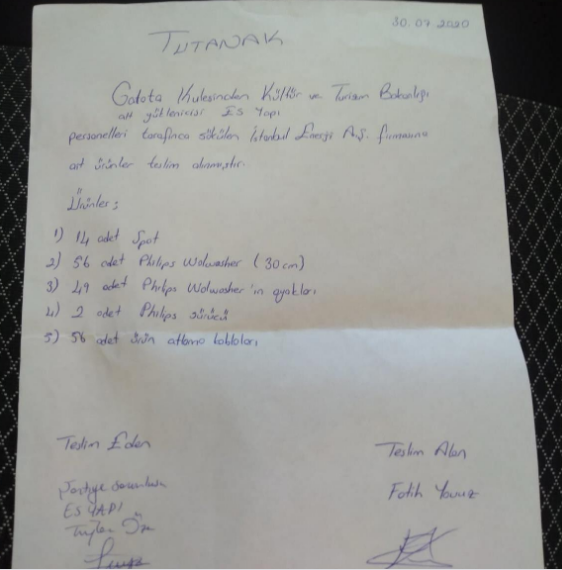 30.07.2020
TUTANAK
Galata Kulesinden Kültür ve Turizm Bakanlığı
alt yüklenicisi ES Yapı
personelleri tarafınca sökülen İstanbul Enerji A.Ş. firmasına
ait ürünler teslim alınmıştır.
Ürünler;
1) 14 adet Spot
2) 56 adet Philips Wolwasher (30 cm)
3) 49 adet Philips Wolwasher'ın ayakları
4) 2 adet Philips sürücü
5) 56 adet ürün atlama kabloları
Teslim Eden
Teslim Alan
Şantiye Sorumlusu
Fatih Yavuz
ES YAPI